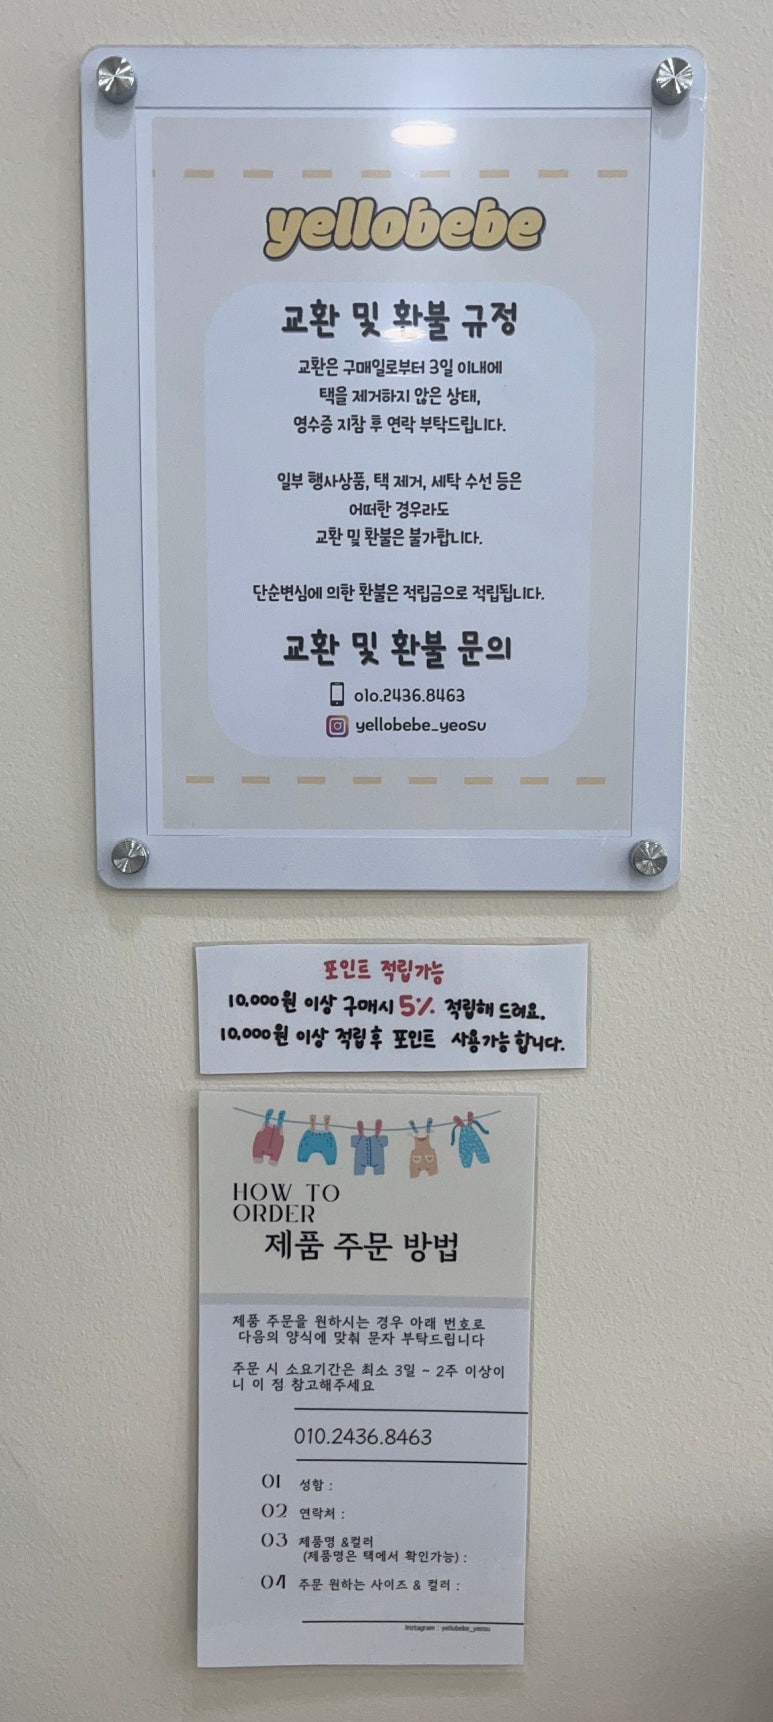 yellobebe
교환 및 환불 규정
교환은 구매일로부터 3일 이내에
택을 제거하지 않은 상태,
영수증 지참 후 연락 부탁드립니다.
일부 행사상품, 택 제거, 세탁 수선 등은
어떠한 경우라도
교환 및 환불은 불가합니다.
단순변심에 의한 환불은 적립금으로 적립됩니다.
교환 및 환불 문의
010.2436.8463
yellobebe_yeosu
포인트 적립가능
10,000원 이상 구매시 5% 적립해 드려요.
10,000원 이상 적립 후 포인트 사용가능 합니다.
HOW TO
ORDER
제품 주문 방법
제품 주문을 원하시는 경우 아래 번호로
다음의 양식에 맞춰 문자 부탁드립니다
주문 시 소요기간은 최소 3일 ~ 2주 이상이
니 이 점 참고해주세요
010.2436.8463
01 성함 :
02 연락처 :
03 제품명 &컬러
(제품명은 택에서 확인가능) :
04 주문 원하는 사이즈 & 컬러 :
Instagram : yellobebe_yeosu